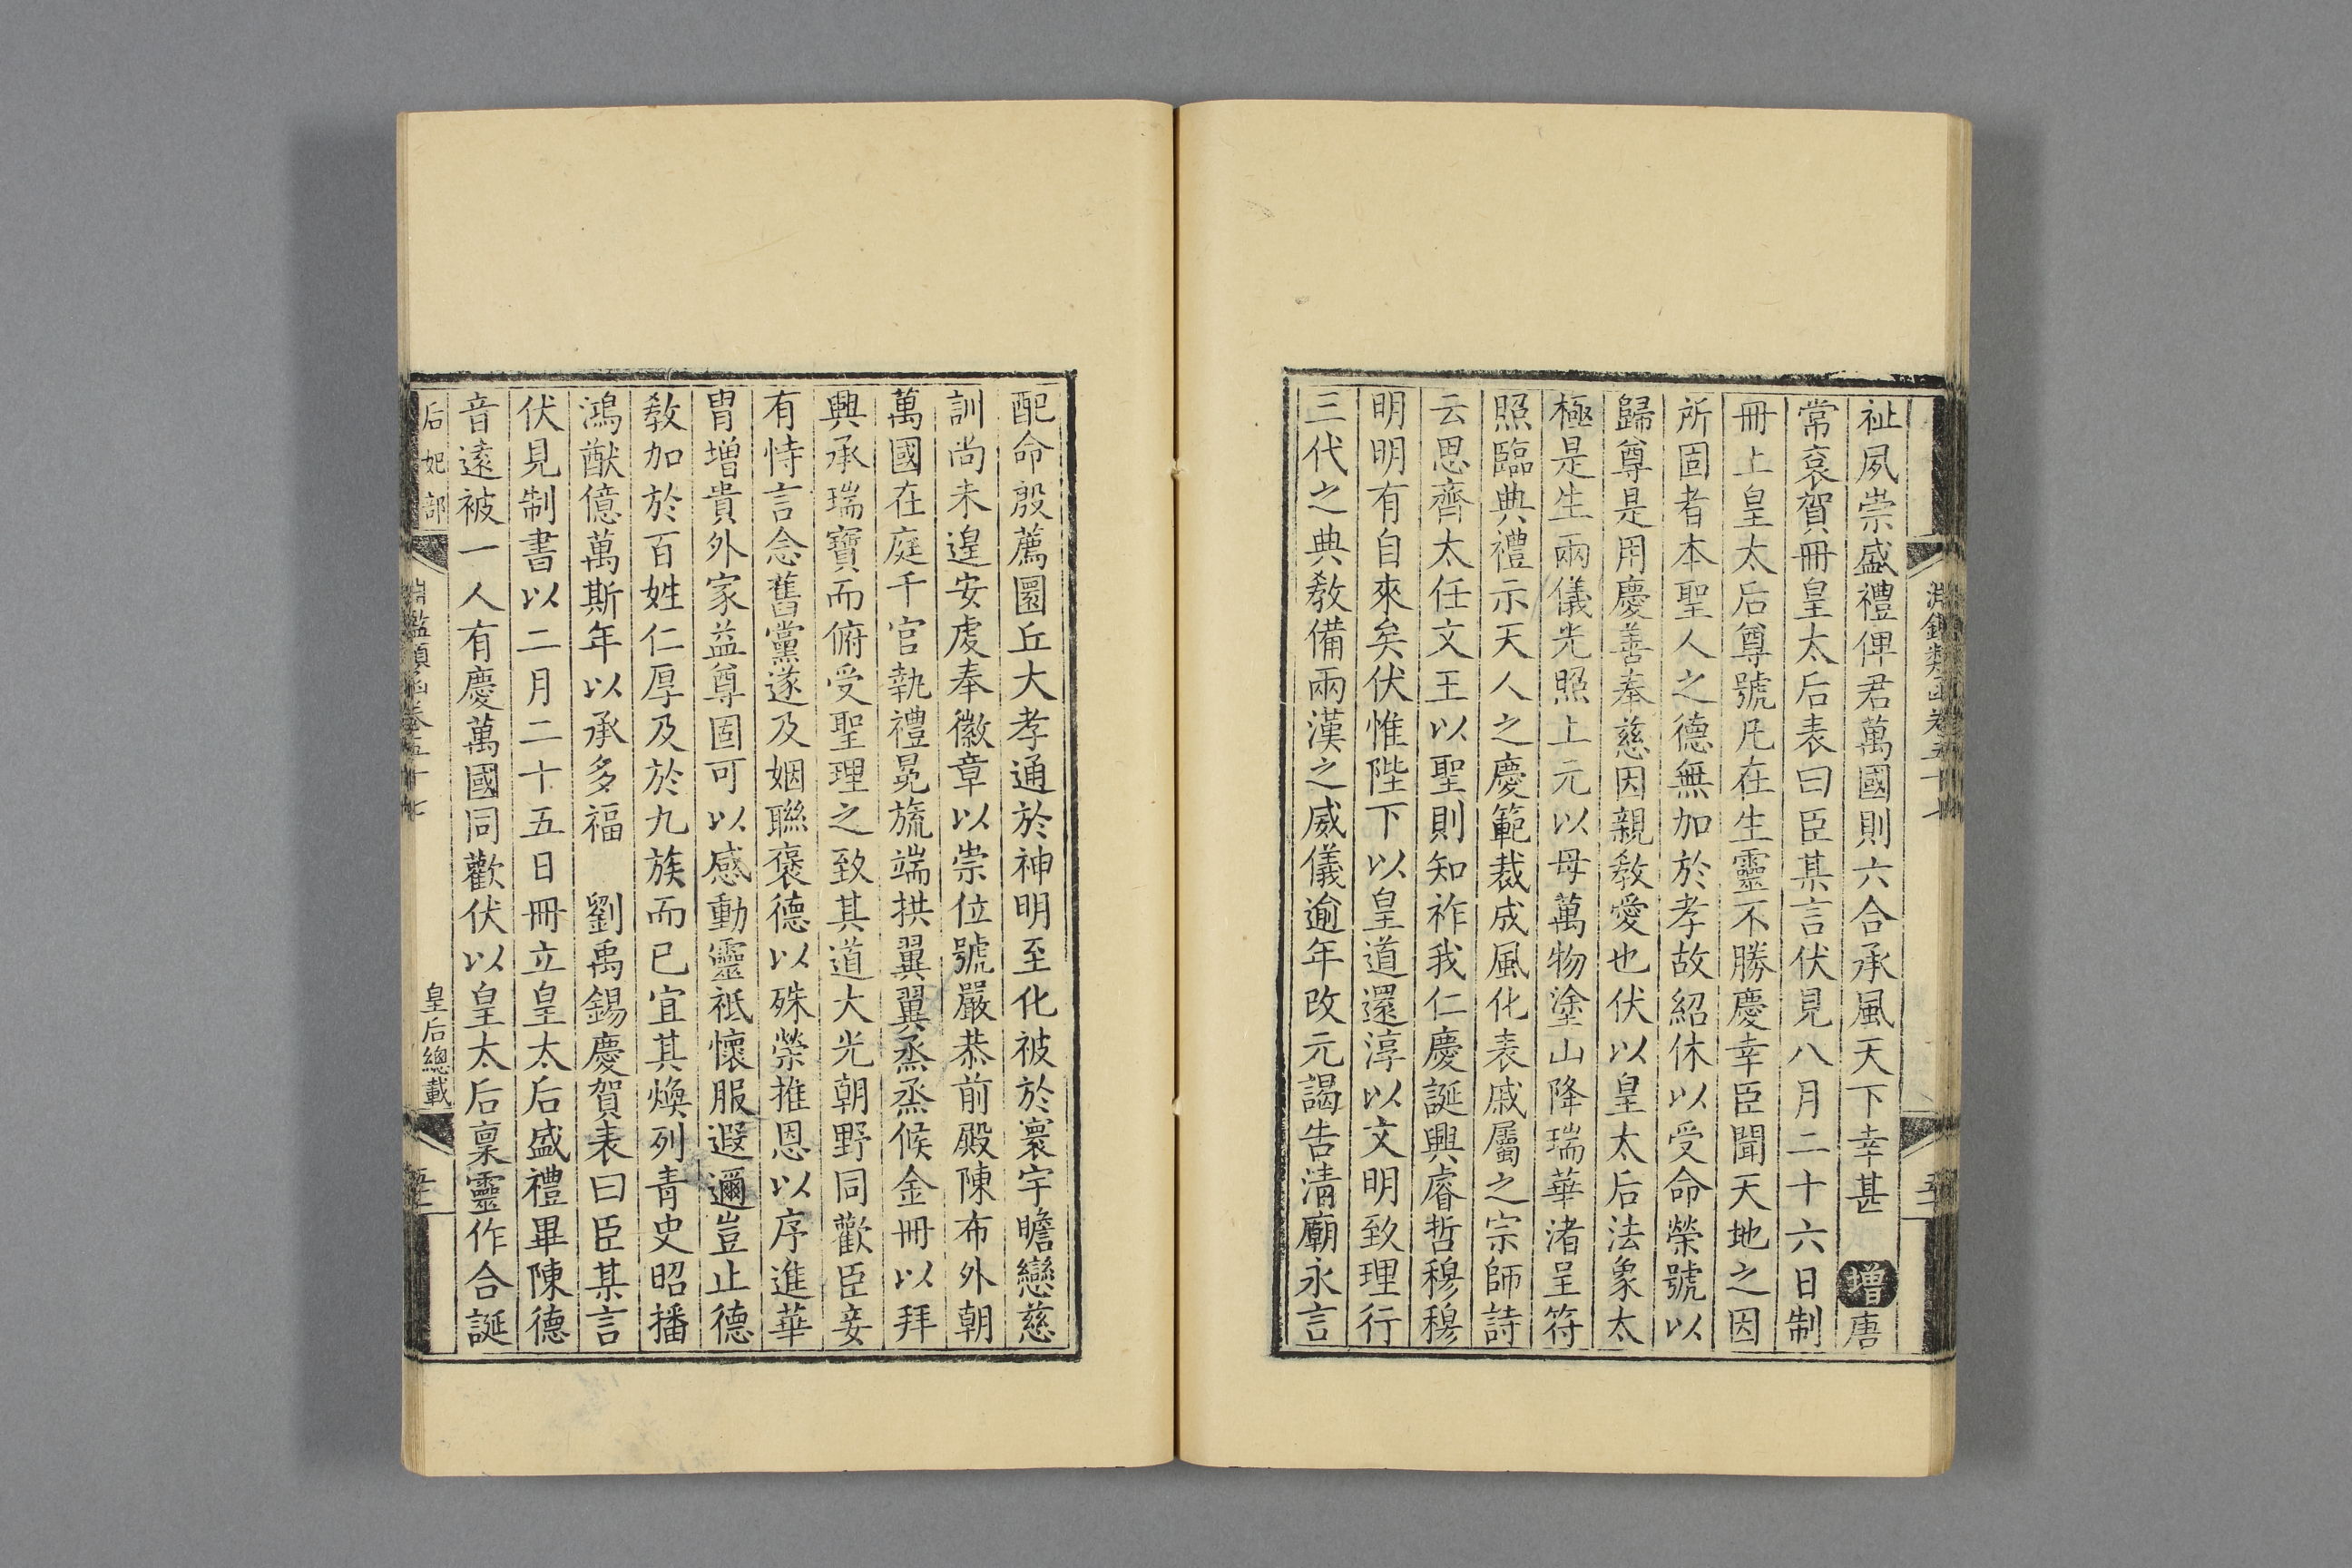 淵鑑類函卷五十七
祉夙崇盛禮俾君萬國則六合承風天下幸甚 增唐
常袞賀冊皇太后表曰臣某言伏見八月二十六日制
冊上皇太后尊號凡在生靈不勝慶幸臣聞天地之因
所固者本聖人之德無加於孝故紹休以受命榮號以
歸尊是用慶善奉慈因親敎愛也伏以皇太后法象太
極是生兩儀光照上元以母萬物塗山降瑞華渚呈符
照臨典禮示天人之慶範裁成風化表戚屬之宗師詩
云思齊太任文王以聖則知祚我仁慶誕興睿哲穆穆
明明有自來矣伏惟陛下以皇道還淳以文明致理行
三代之典敎備兩漢之威儀逾年改元謁告清廟永言
配命殷薦圜丘大孝通於神明至化被於寰宇瞻戀慈
訓尚未遑安處奉徽章以崇位號嚴恭前殿陳布外朝
萬國在庭千官執禮冕旒端拱翼翼烝烝候金冊以拜
興承瑞寶而俯受聖理之致其道大光朝野同歡臣妾
有恃言念舊黨遂及姻聯褒德以殊榮推恩以序進華
胄增貴外家益尊固可以感動靈祗懷服遐邇豈止德
敎加於百姓仁厚及於九族而已宜其煥列青史昭播
鴻猷億萬斯年以承多福 劉禹錫慶賀表曰臣某言
伏見制書以二月二十五日冊立皇太后盛禮畢陳德
音遠被一人有慶萬國同歡伏以皇太后稟靈作合誕
后妃部 淵鑑類函卷五十七 皇后總載